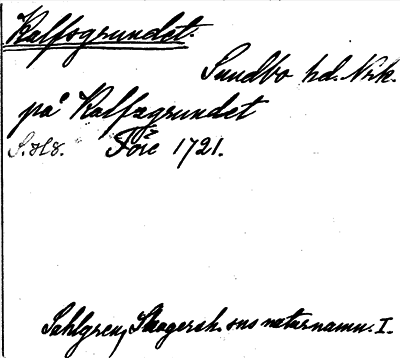 Kalfsgrundet.
Sundbo hd. Nrk.
på Kalfsgrundet
S. 318. Före 1721.
Sahlgren, Skagersh. sns naturnamn. I.